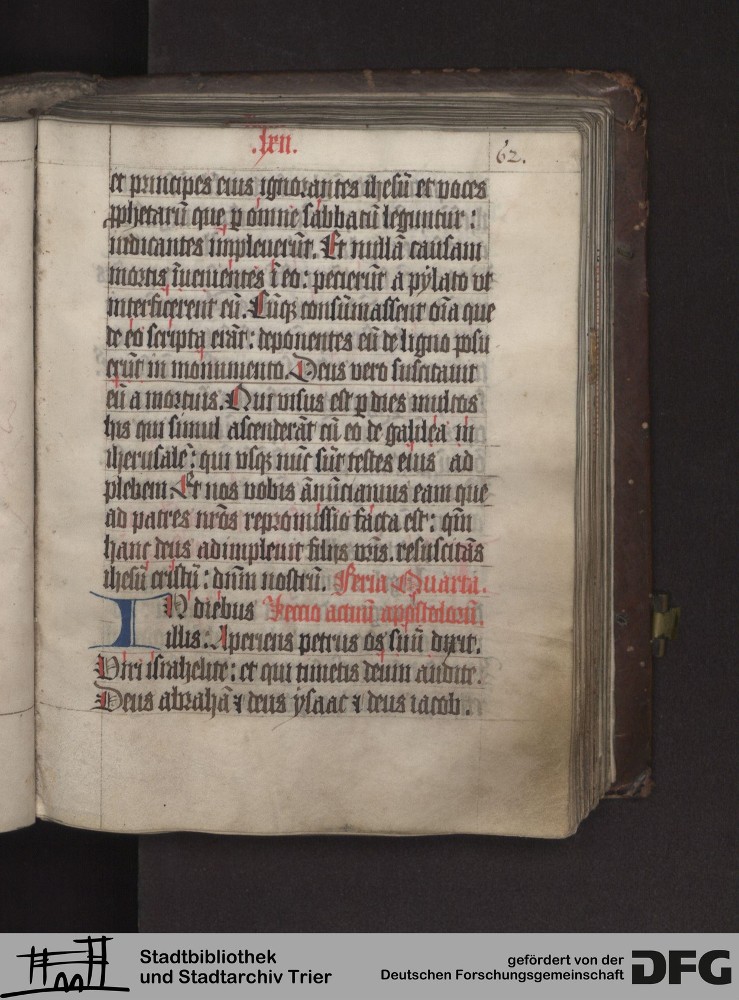 .lxii.
62.
et principes eius ignorantes ihesū et voces
ꝓphetarū que ꝑ omne sabbatū leguntur :
iudicantes impleuerūt. Et nullā causam
mortis īuenientes ī eo : petierūt a pylato vt
interficerent eū. Cūqꝫ consūmassent oīa que
de eo scripta erāt : deponentes eū de ligno posu
erūt in monumento. Deus vero suscitauit
eū a mortuis. Qui visus est ꝑ dies multos
his qui simul ascenderāt cū eo de galilea in
iherusalē : qui vsqꝫ nūc sūt testes eius ad
plebem. Et nos vobis ānūciamus eam que
ad patres nr̄os repromissio facta est : qm̄
hanc deus adimpleuit filijs vr̄is. resuscitās
ihesū cristū : dn̄m nostrū. Feria Quarta.
IN diebus Leccio actuū appostolorū.
illis : Aperiens petrus os suū dixit.
Viri israhelite : et qui timetis deum audite.
Deus abrahā ⁊ deus ysaac ⁊ deus iacob.
Stadtbibliothek
und Stadtarchiv Trier
gefördert von der
Deutschen Forschungsgemeinschaft
DFG